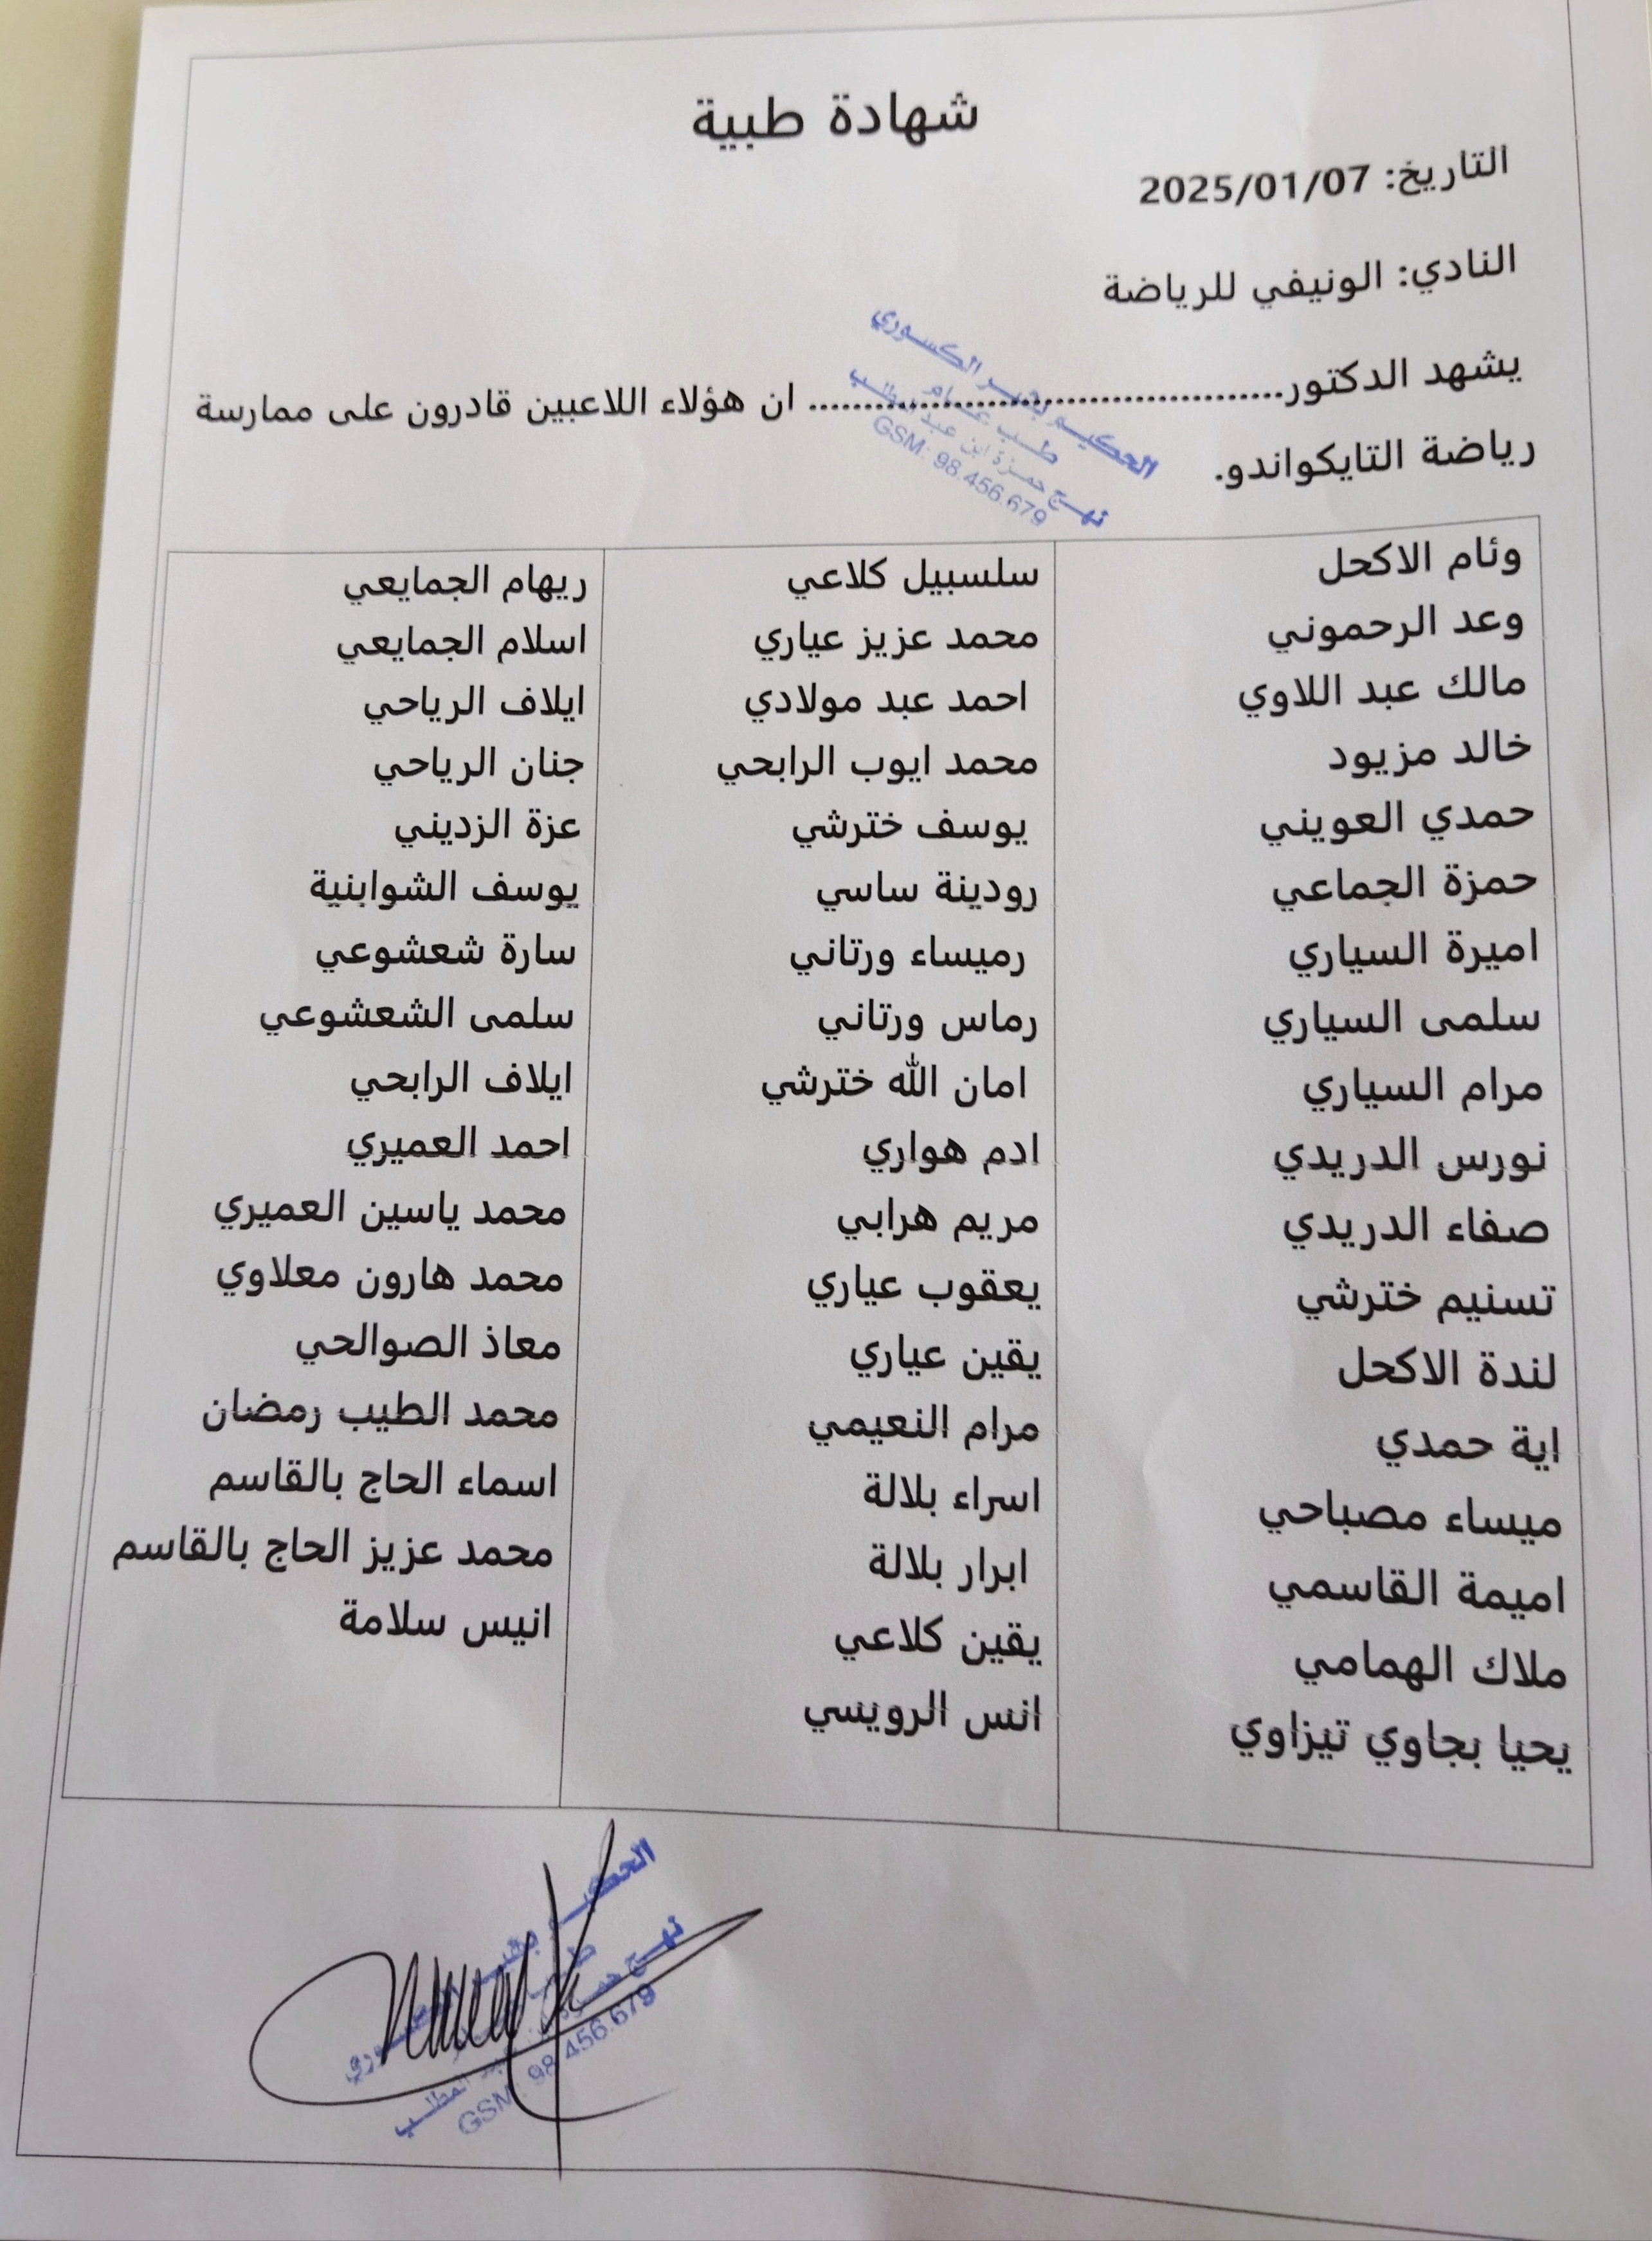 شهادة طبية
التاريخ: 2025/01/07
النادي: الونيفي للرياضة
يشهد الدكتور........................................ ان هؤلاء اللاعبين قادرون على ممارسة
رياضة التايكواندو.
الحكيم بخير الكسوري
طب عام
نهج حمزة ابن عبد المطلب
GSM: 98.456.679
وئام الاكحل
وعد الرحموني
مالك عبد اللاوي
خالد مزيود
حمدي العويني
حمزة الجماعي
اميرة السياري
سلمى السياري
مرام السياري
نورس الدريدي
صفاء الدريدي
تسنيم خترشي
لندة الاكحل
اية حمدي
ميساء مصباحي
اميمة القاسمي
ملاك الهمامي
يحيا بجاوي تيزاوي
سلسبيل كلاعي
محمد عزيز عياري
احمد عبد مولادي
محمد ايوب الرابحي
يوسف خترشي
رودينة ساسي
رميساء ورتاني
رماس ورتاني
امان الله خترشي
ادم هواري
مريم هرابي
يعقوب عياري
يقين عياري
مرام النعيمي
اسراء بلالة
ابرار بلالة
يقين كلاعي
انس الرويسي
ريهام الجمايعي
اسلام الجمايعي
ايلاف الرياحي
جنان الرياحي
عزة الزديني
يوسف الشوابنية
سارة شعشوعي
سلمى الشعشوعي
ايلاف الرابحي
احمد العميري
محمد ياسين العميري
محمد هارون معلاوي
معاذ الصوالحي
محمد الطيب رمضان
اسماء الحاج بالقاسم
محمد عزيز الحاج بالقاسم
انيس سلامة
الحكيم
طب
نهج حمزة عبد المطلب
GSM: 98.456.679